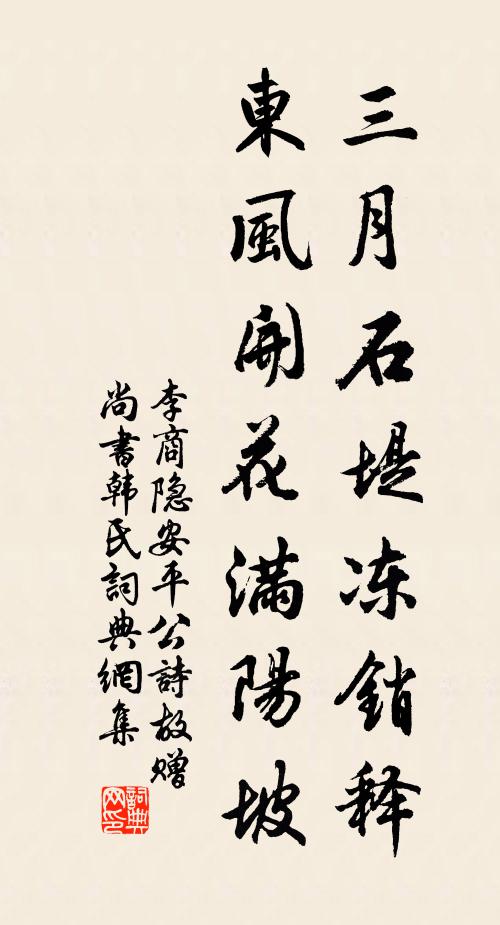 三月石堤冻銷释
東風開花滿陽坡
李商隐安平公詩故赠
尚書韩氏詞典網集
詞典网印